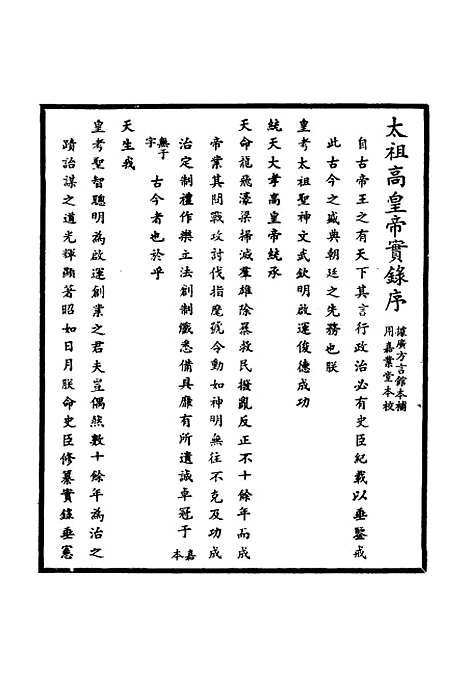 太祖高皇帝實錄序
據廣方言館本補
用嘉業堂本校
自古帝王之有天下其言行政治必有史臣紀載以垂鑒戒
此古今之盛典朝廷之先務也朕
皇考太祖聖神文武欽明啟運俊德成功
統天大孝高皇帝統承
天命龍飛濠梁掃滅羣雄除暴救民撥亂反正不十餘年而成
帝業其間戰攻討伐指麾號令動如神明無往不克及功成
治定制禮作樂立法創制纖悉備具靡有所遺誠卓冠于
嘉本
無于字
古今者也於乎
天生我
皇考聖智聰明為啟運創業之君夫豈偶然數十餘年為治之
蹟詒謀之道光輝顯著昭如日月朕命史臣修纂實錄垂憲